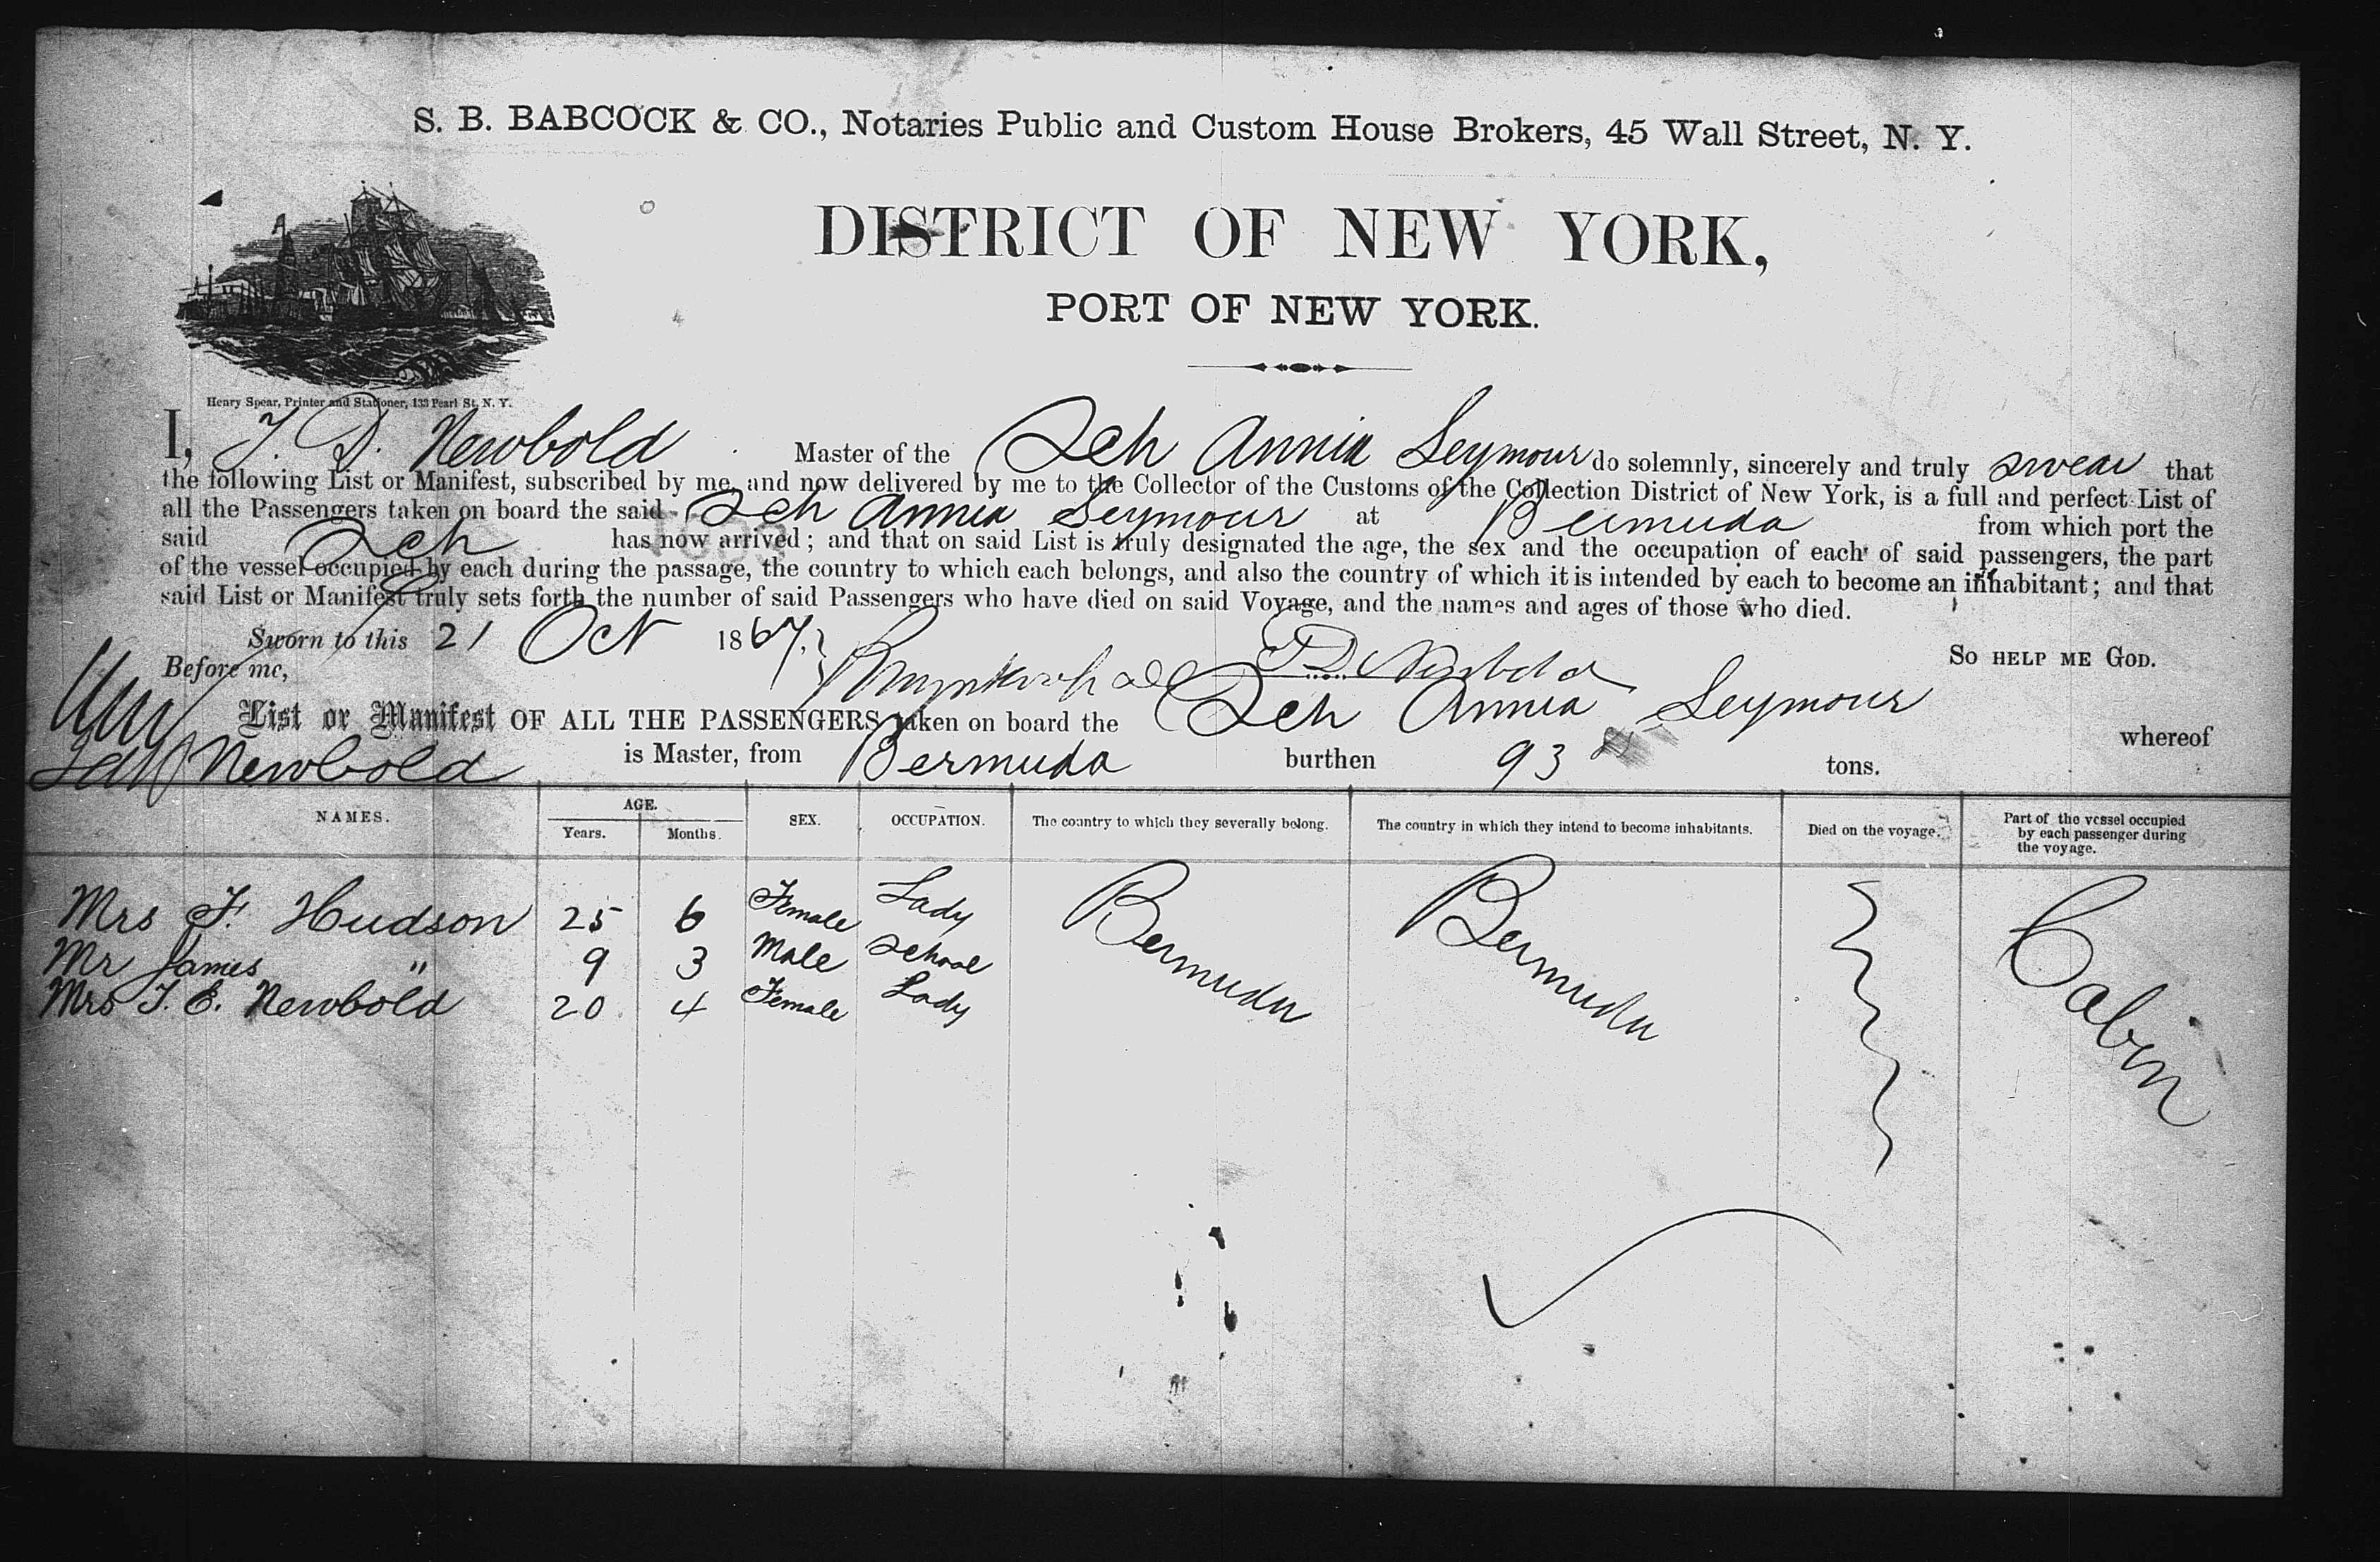 S. B. BABCOCK & CO., Notaries Public and Custom House Brokers, 45 Wall Street, N. Y.
DISTRICT OF NEW YORK,
PORT OF NEW YORK.
Henry Spear, Printer and Stationer, 133 Pearl St, N. Y.
I, T. D. Newbold Master of the Sch Annia Seymour do solemnly, sincerely and truly swear that
the following List or Manifest, subscribed by me, and now delivered by me to the Collector of the Customs of the Collection District of New York, is a full and perfect List of
all the Passengers taken on board the said Sch Annia Seymour at Bermuda from which port the
said Sch has now arrived; and that on said List is truly designated the age, the sex and the occupation of each of said passengers, the part
of the vessel occupied by each during the passage, the country to which each belongs, and also the country of which it is intended by each to become an inhabitant; and that
said List or Manifest truly sets forth the number of said Passengers who have died on said Voyage, and the names and ages of those who died.
Sworn to this 21 Oct 1867. T D Newbold So HELP ME GOD.
Before me,
List or Manifest OF ALL THE PASSENGERS taken on board the Sch Annia Seymour whereof
Newbold is Master, from Bermuda burthen 93 tons.
NAMES. AGE. Years. Months. SEX. OCCUPATION. The country to which they severally belong. The country in which they intend to become inhabitants. Died on the voyage. Part of the vessel occupied by each passenger during the voyage.
Mrs F. Hudson 25 6 Female Lady Bermuda Bermuda Cabin
Mr James " 9 3 Male School
Mrs T. E. Newbold 20 4 Female Lady